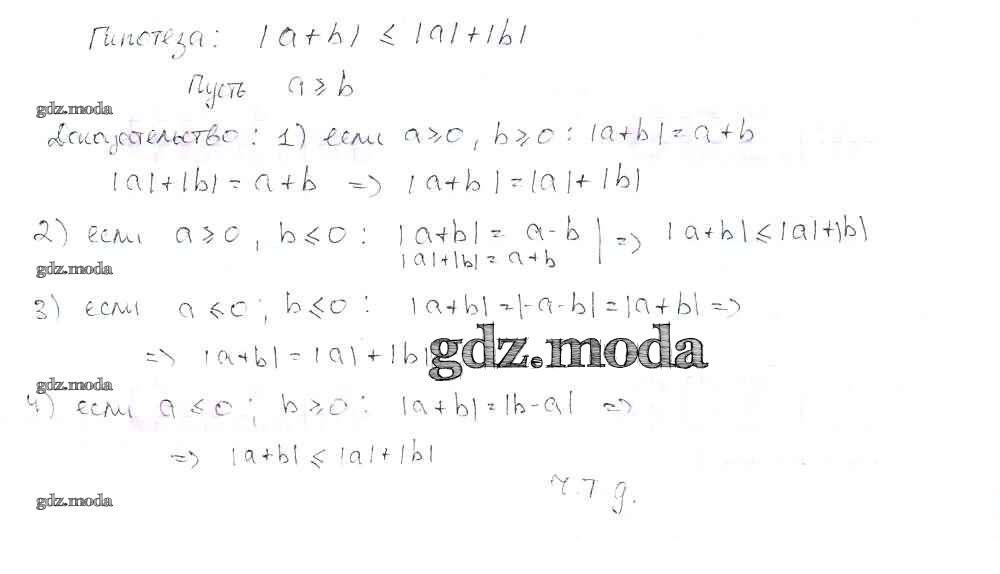 Гипотеза: |a+b| ≤ |a|+|b|
Пусть a ≥ b
gdz.moda
Доказательство: 1) если a ≥ 0, b ≥ 0: |a+b| = a+b
|a|+|b| = a+b => |a+b| = |a|+|b|
2) если a ≥ 0, b ≤ 0: |a+b| = a-b | => |a+b| ≤ |a|+|b|
|a|+|b| = a+b
gdz.moda
3) если a ≤ 0; b ≤ 0: |a+b| = |-a-b| = |a+b| =>
=> |a+b| = |a|+|b|
gdz.moda
gdz.moda
4) если a ≤ 0; b ≥ 0: |a+b| = |b-a| =>
=> |a+b| ≤ |a|+|b|
ч.т.д.
gdz.moda